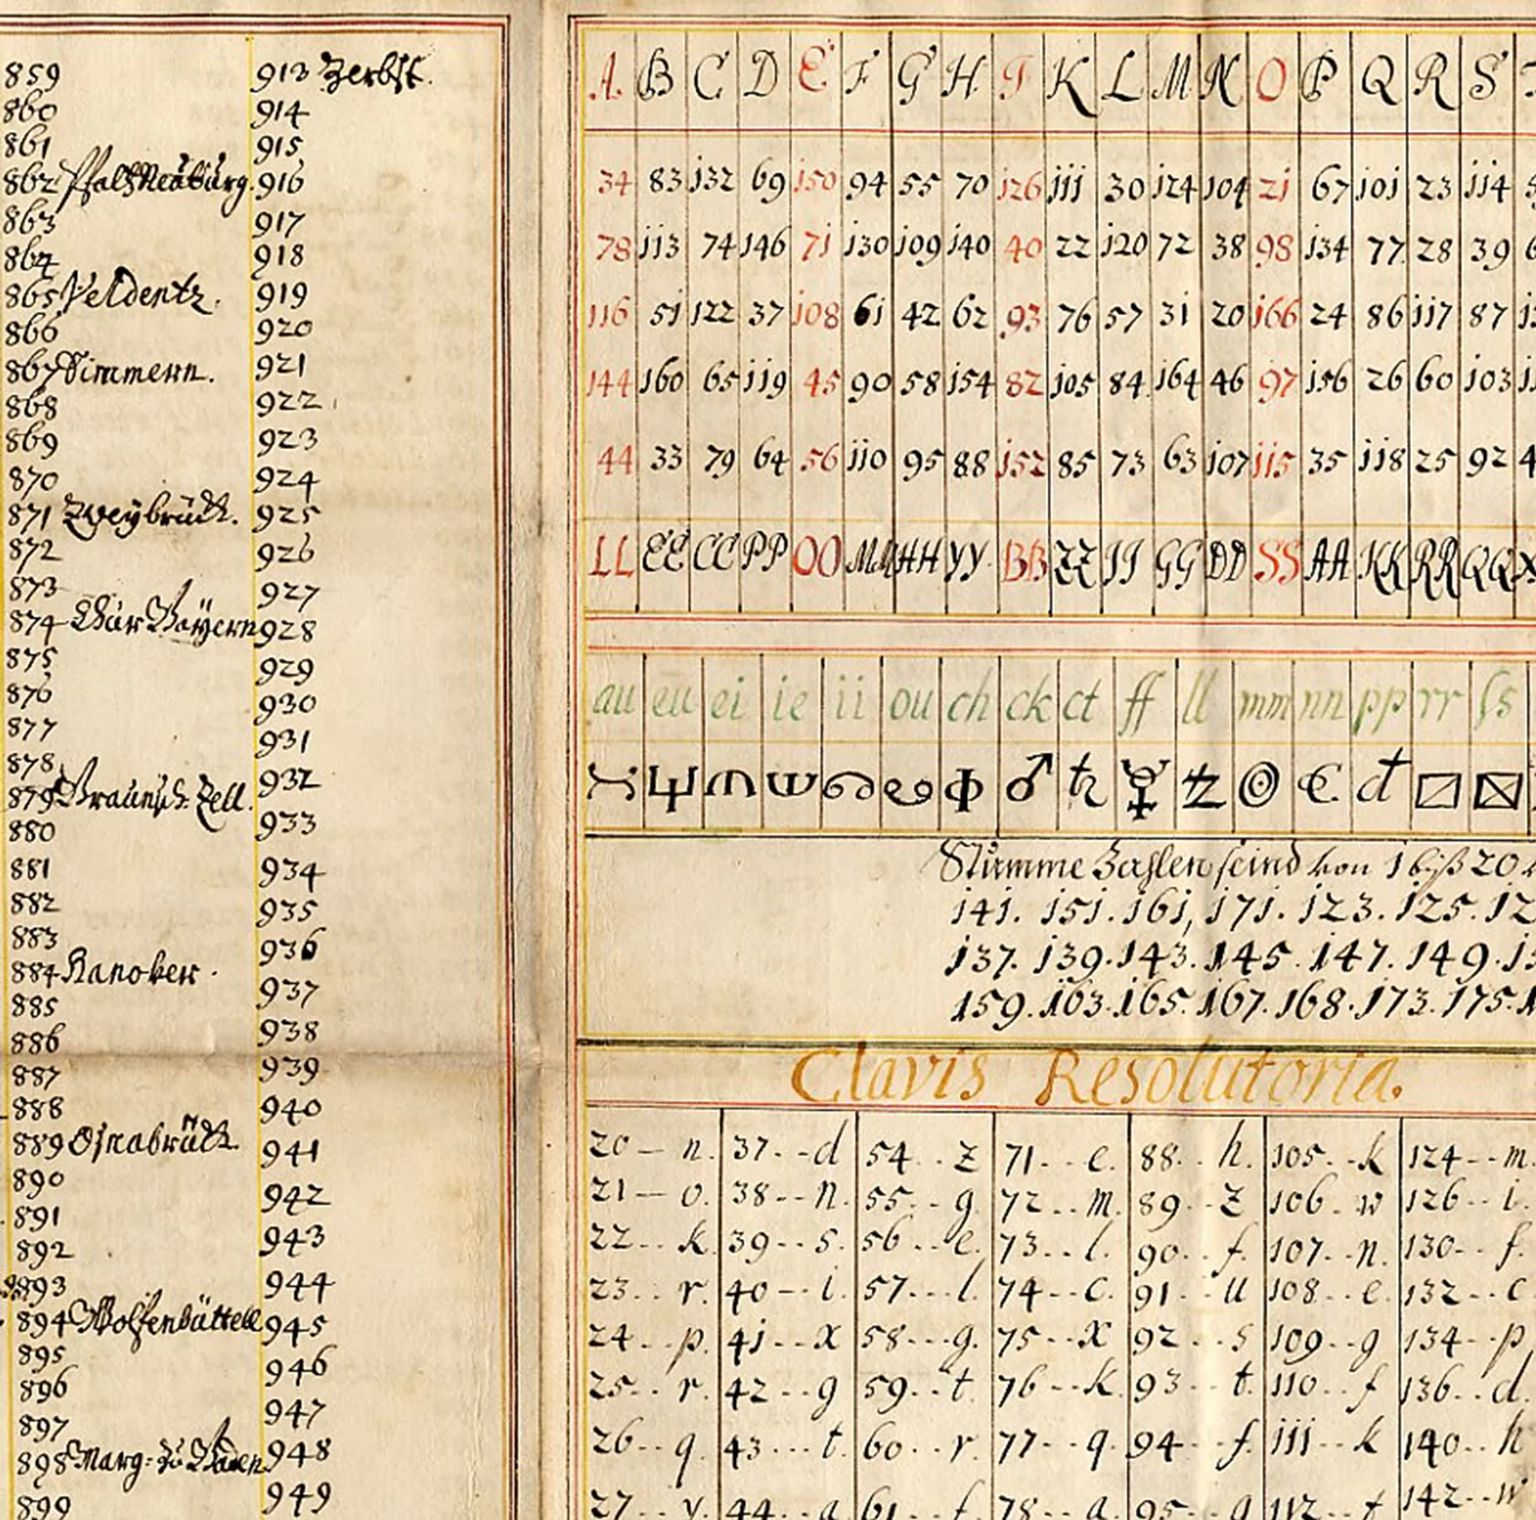 859
860
861
862 Pfaltz Neüburg.
863
864
865 Veldentz.
866
867 Simmern.
868
869
870
871 Zweÿbrück.
872
873
874 Chür Baÿern
875
876
877
878
879 Braunsch. Zell.
880
881
882
883
884 Hanover.
885
886
887
888
889 Osnabrück.
890
891
892
893
894 Wolfenbüttell
895
896
897
898 Marg: zu Baden
899
913 Zerbst.
914
915
916
917
918
919
920
921
922
923
924
925
926
927
928
929
930
931
932
933
934
935
936
937
938
939
940
941
942
943
944
945
946
947
948
949
A. B C D E F G H I K L M N O P Q R S
34 83 132 69 150 94 55 70 126 111 30 124 104 21 67 101 23 114
78 113 74 146 71 130 109 140 40 22 120 72 38 98 134 77 28 39
116 51 122 37 108 61 42 62 93 76 57 31 20 166 24 86 117 87
144 160 65 119 45 90 58 154 82 105 84 164 46 97 156 26 60 103
44 33 79 64 56 110 95 88 152 85 73 63 107 115 35 118 25 92
LL EE CC PP OO MM HH YY BB ZZ II GG DD SS AA KK RR QQ
au eu ei ie ii ou ch ck ct ff ll mm nn pp rr ſs
♂
Stumme Zahlen seind von 1 biß 20
141. 151. 161, 171. 123. 125.
137. 139. 143. 145. 147. 149.
159. 163. 165. 167. 168. 173. 175.
Clavis Resolutoria.
20 — n. 37. - d 54. . z 71- . e. 88. . h. 105. - k 124 - - m.
21 — o. 38 - - n. 55. . g. 72. . m. 89. . z 106. w 126 - - i.
22. . k. 39 - - s. 56. . e. 73. . l. 90. . f. 107. - n. 130. . f.
23. . r. 40 - - i. 57. . . l. 74 - - c. 91. . u 108. . e. 132. . c
24. . p. 41. . x 58. . . g. 75. . x 92. . s 109. . g 134. . p
25. . r. 42. . g 59. . t. 76. . k. 93. . t. 110. . f 136. . d.
26. . q. 43. . . t. 60. . r. 77. . q. 94. . f. 111. . k 140. . h
27. . y. 44. . a. 61. . f. 78. . a. 95. . g 112. . t 142. . w